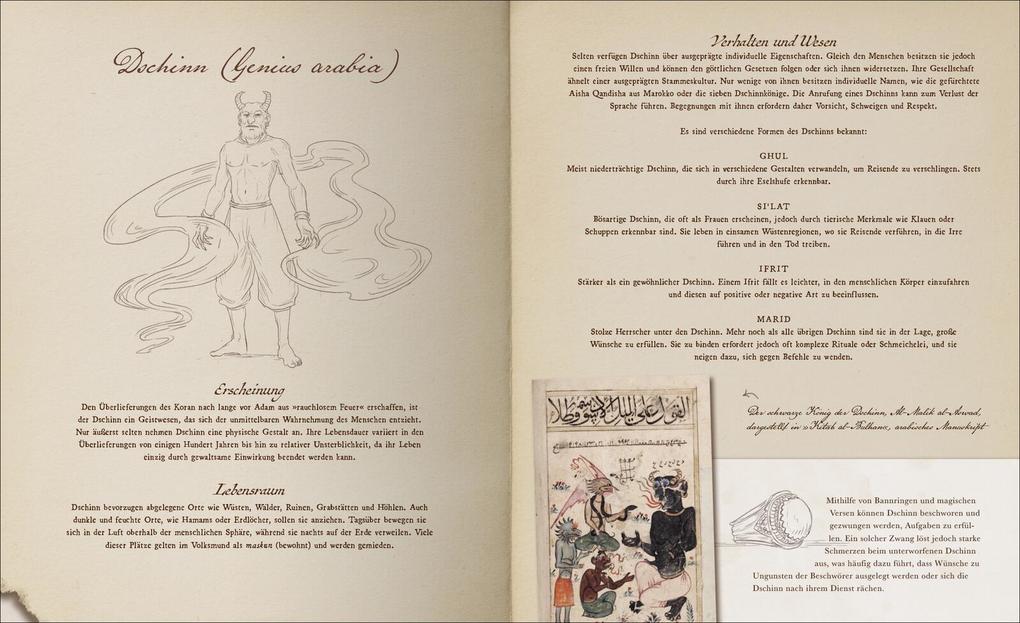 Dschinn (Genius arabia)
Erscheinung
Den Überlieferungen des Koran nach lange vor Adam aus »rauchlosem Feuer« erschaffen, ist
der Dschinn ein Geistwesen, das sich der unmittelbaren Wahrnehmung des Menschen entzieht.
Nur äußerst selten nehmen Dschinn eine physische Gestalt an. Ihre Lebensdauer variiert in den
Überlieferungen von einigen Hundert Jahren bis hin zu relativer Unsterblichkeit, da ihr Leben
einzig durch gewaltsame Einwirkung beendet werden kann.
Lebensraum
Dschinn bevorzugen abgelegene Orte wie Wüsten, Wälder, Ruinen, Grabstätten und Höhlen. Auch
dunkle und feuchte Orte, wie Hamams oder Erdlöcher, sollen sie anziehen. Tagsüber bewegen sie
sich in der Luft oberhalb der menschlichen Sphäre, während sie nachts auf der Erde verweilen. Viele
dieser Plätze gelten im Volksmund als maskun (bewohnt) und werden gemieden.
Verhalten und Wesen
Selten verfügen Dschinn über ausgeprägte individuelle Eigenschaften. Gleich den Menschen besitzen sie jedoch
einen freien Willen und können den göttlichen Gesetzen folgen oder sich ihnen widersetzen. Ihre Gesellschaft
ähnelt einer ausgeprägten Stammeskultur. Nur wenige von ihnen besitzen individuelle Namen, wie die gefürchtete
Aisha Qandisha aus Marokko oder die sieben Dschinnkönige. Die Anrufung eines Dschinns kann zum Verlust der
Sprache führen. Begegnungen mit ihnen erfordern daher Vorsicht, Schweigen und Respekt.
Es sind verschiedene Formen des Dschinns bekannt:
GHUL
Meist niederträchtige Dschinn, die sich in verschiedene Gestalten verwandeln, um Reisende zu verschlingen. Stets
durch ihre Eselshufe erkennbar.
SI'LAT
Bösartige Dschinn, die oft als Frauen erscheinen, jedoch durch tierische Merkmale wie Klauen oder
Schuppen erkennbar sind. Sie leben in einsamen Wüstenregionen, wo sie Reisende verführen, in die Irre
führen und in den Tod treiben.
IFRIT
Stärker als ein gewöhnlicher Dschinn. Einem Ifrit fällt es leichter, in den menschlichen Körper einzufahren
und diesen auf positive oder negative Art zu beeinflussen.
MARID
Stolze Herrscher unter den Dschinn. Mehr noch als alle übrigen Dschinn sind sie in der Lage, große
Wünsche zu erfüllen. Sie zu binden erfordert jedoch oft komplexe Rituale oder Schmeichelei, und sie
neigen dazu, sich gegen Befehle zu wenden.
Der schwarze König der Dschinn, Al-Malik al-Aswad,
dargestellt in »Kitab al-Bulhan«, arabisches Manuskript
Mithilfe von Bannringen und magischen
Versen können Dschinn beschworen und
gezwungen werden, Aufgaben zu erfül-
len. Ein solcher Zwang löst jedoch starke
Schmerzen beim unterworfenen Dschinn
aus, was häufig dazu führt, dass Wünsche zu
Ungunsten der Beschwörer ausgelegt werden oder sich die
Dschinn nach ihrem Dienst rächen.